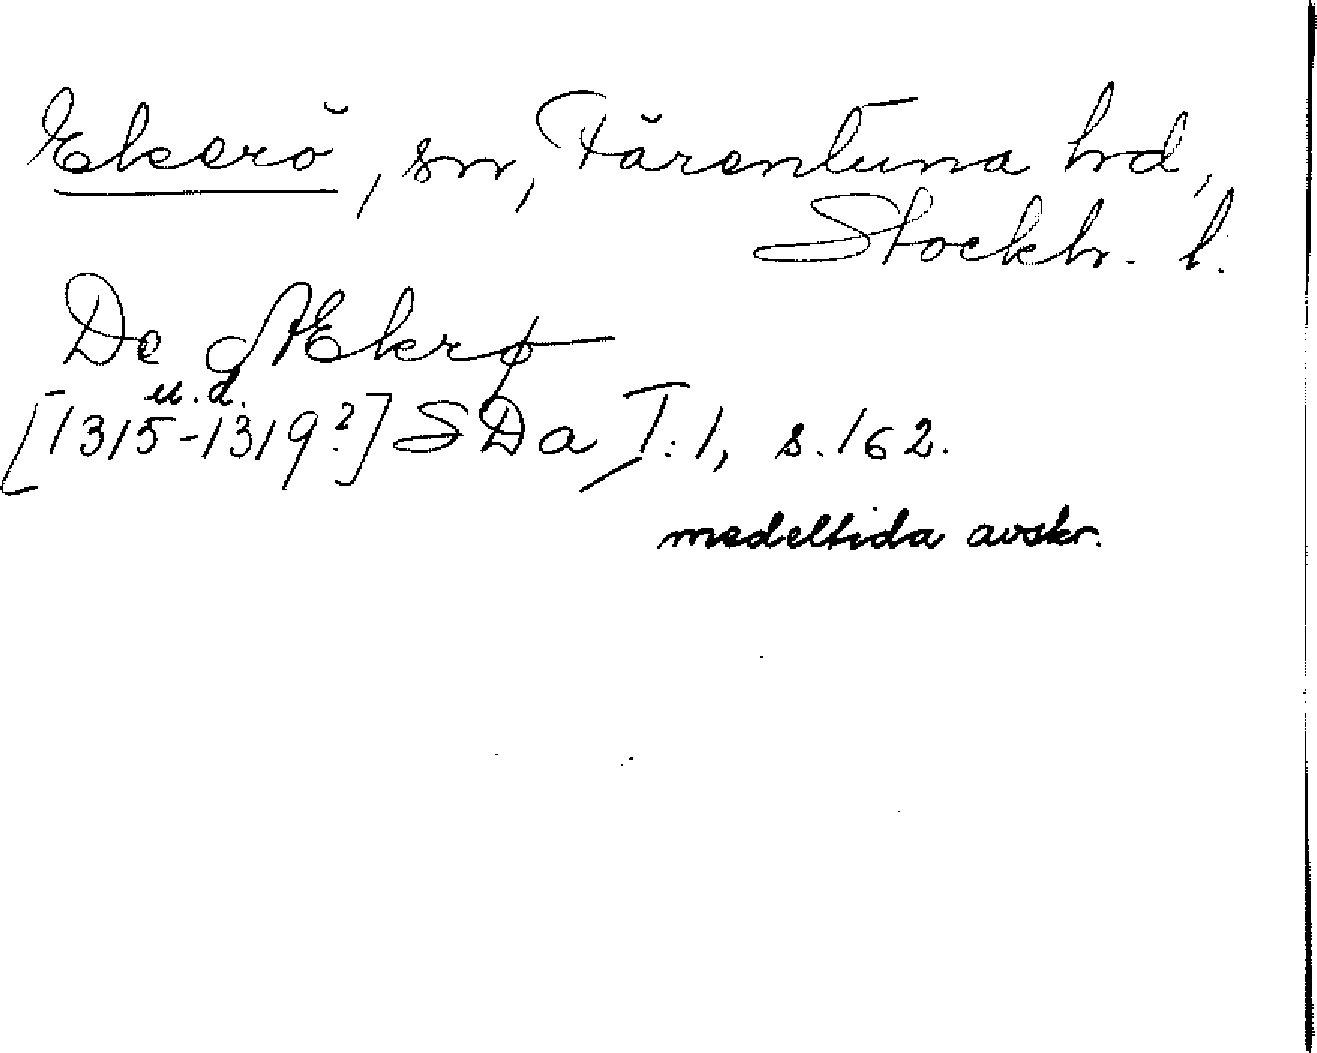 Ekerö, sn, Färentuna hd,
Stockh. l.
De Æekrø
u.d.
[1315-1319?] SDa I:1, s. 162.
medeltida avskr.